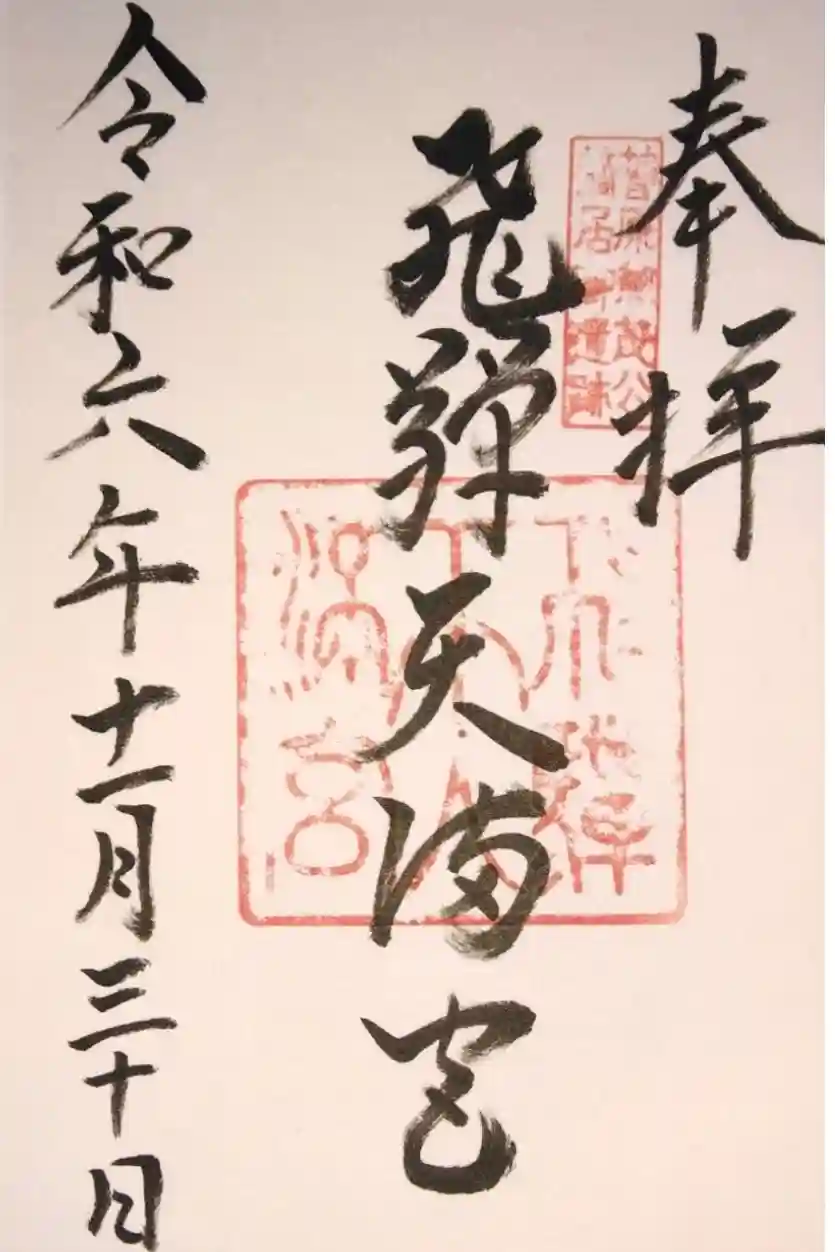 奉拝
菅原兼茂公
謫居御遺跡
飛騨天満宮
飛騨天満宮
令和六年十一月三十日